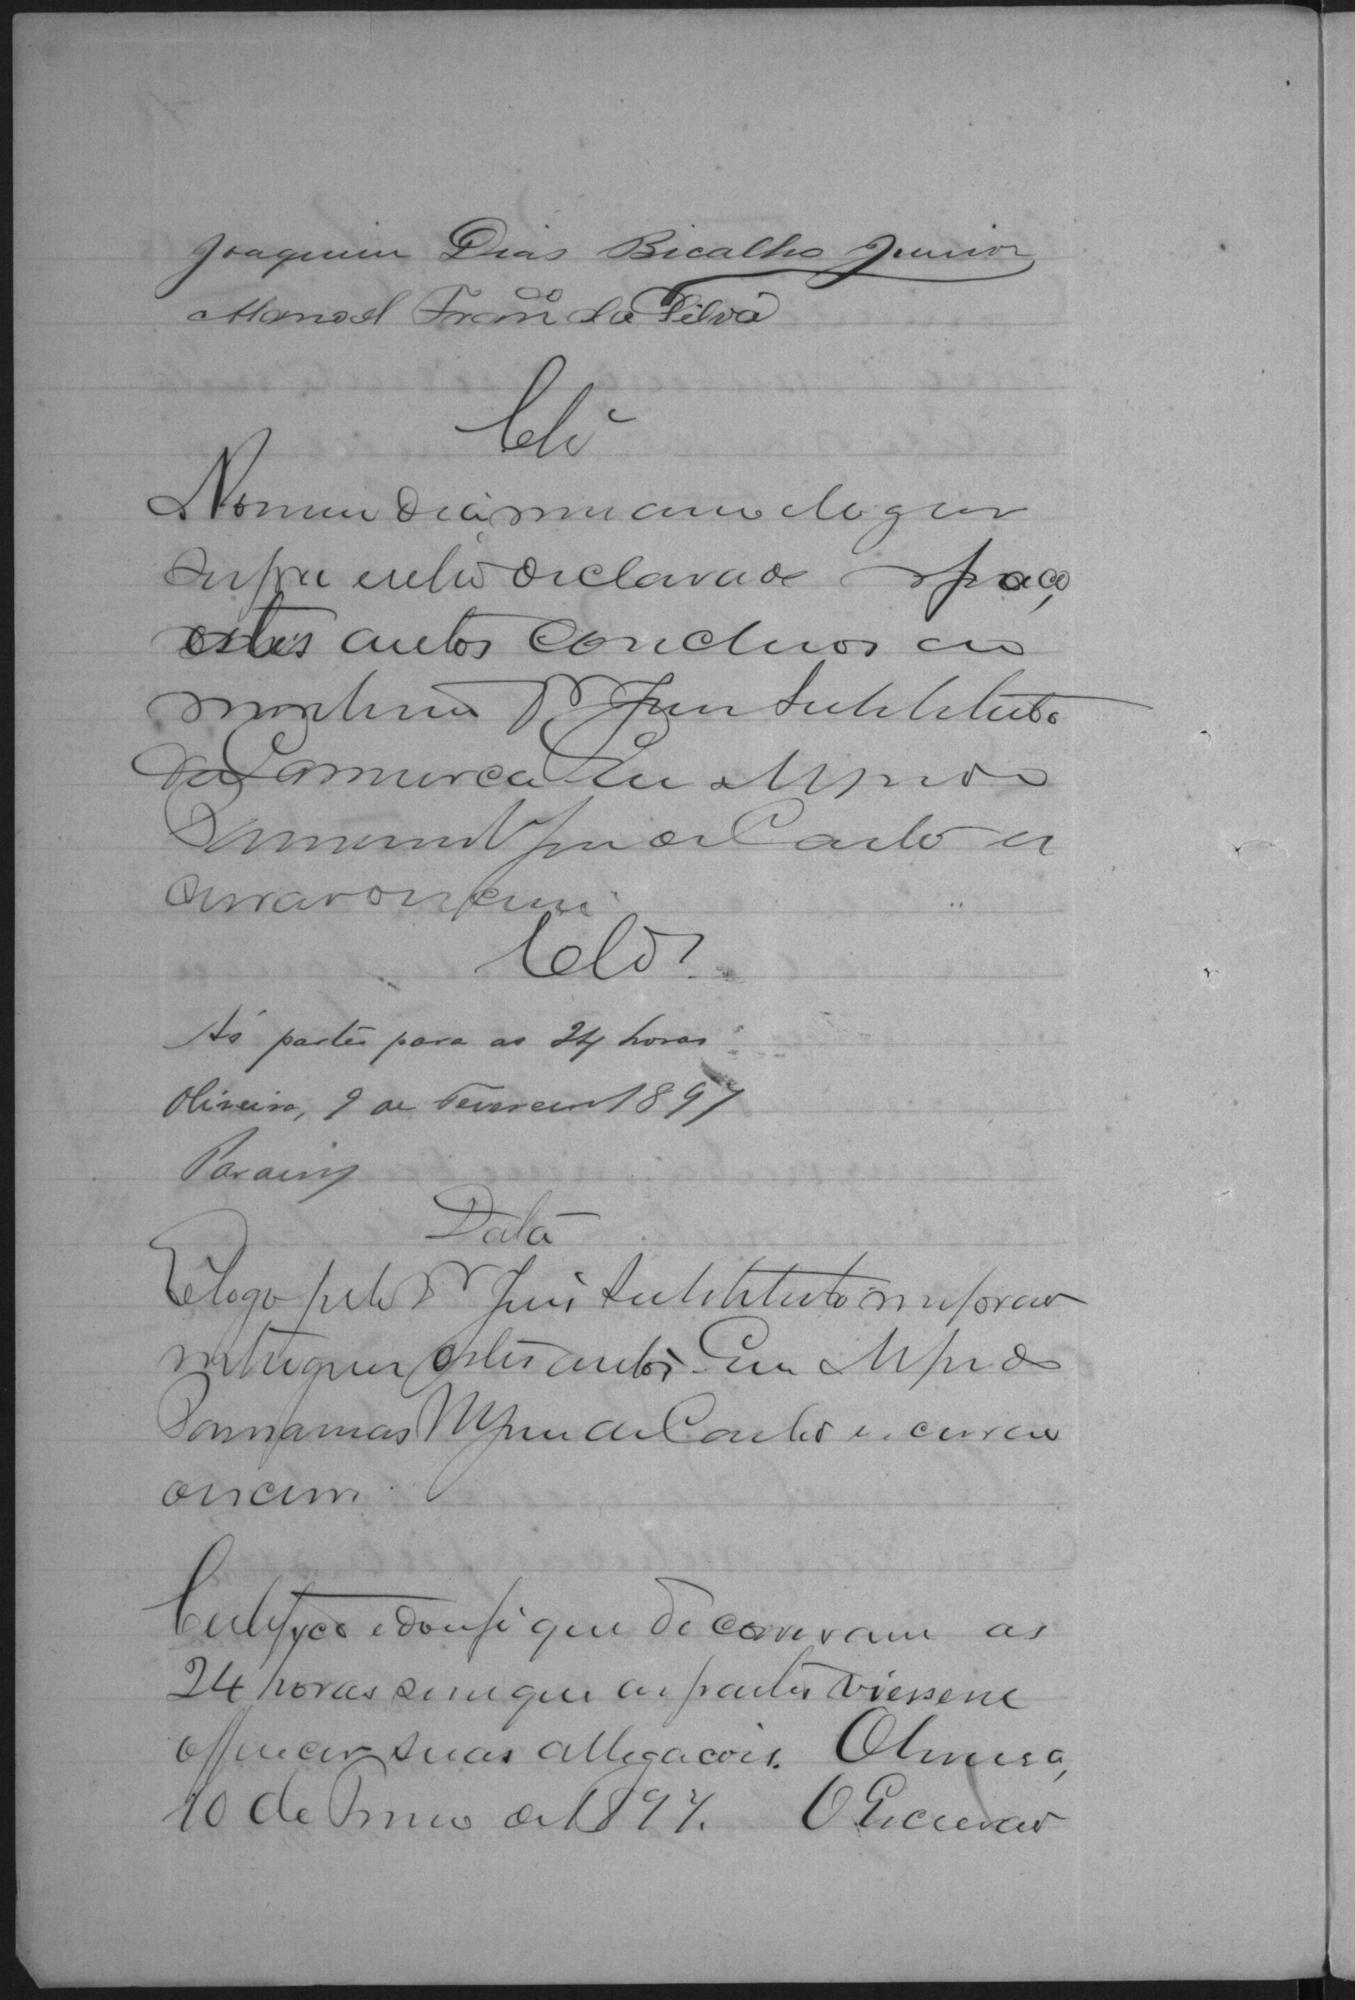 Joaquim Dias Bicalho Junior
Manoel Fran.co da Silva
Cls
No mesmo dia, mes anno e logar
supra e retro declarado faço
estes autos conclusos ao
meretissimo Dr Juiz Substituto
da Comarca Eu
de Castro
escrevi
Clos
Ás partes para as 24 horas
Oliveira, 9 de Fevereiro 1897
Data
E logo pelo Dr Juiz Substituto me forão
entregues estes autos. Eu
de Castro escrivão
escrevi
Certifico e dou fé que decorreram as
24 horas sem que as partes viessem
offerecer suas allegacois. Oliveira,
10 de Fevro de 1897. O Escrivão